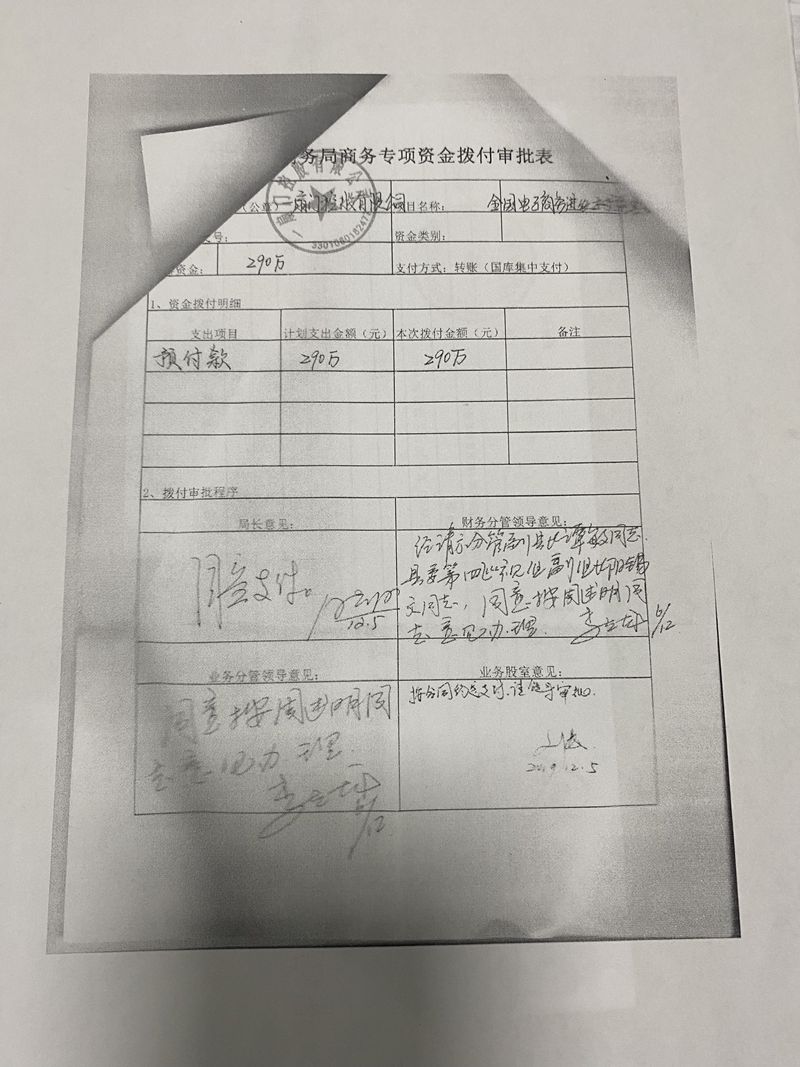 务局商务专项资金拨付审批表
（公章）
目名称：
全国电子商务进
一扇门控股有限公司
号：
资金类别：
资金：
290万
支付方式：转账（国库集中支付）
1、资金拨付明细
支出项目 计划支出金额（元） 本次拨付金额（元） 备注
预付款 290万 290万
2、拨付审批程序
局长意见：
同意支付。
12.5
财务分管领导意见：
经请示分管副县长 同志、
县委第四巡视组副组长
文同志，同意按周 明同
志意见办理。
6/12
业务分管领导意见：
同意按周 明同
志意见办理。
6/12
业务股室意见：
按合同约定支付，请领导审批。
2019.12.5